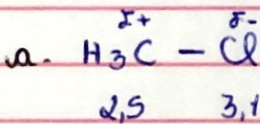 δ+ δ-
a. H₃C – Cl
2,5 3,1